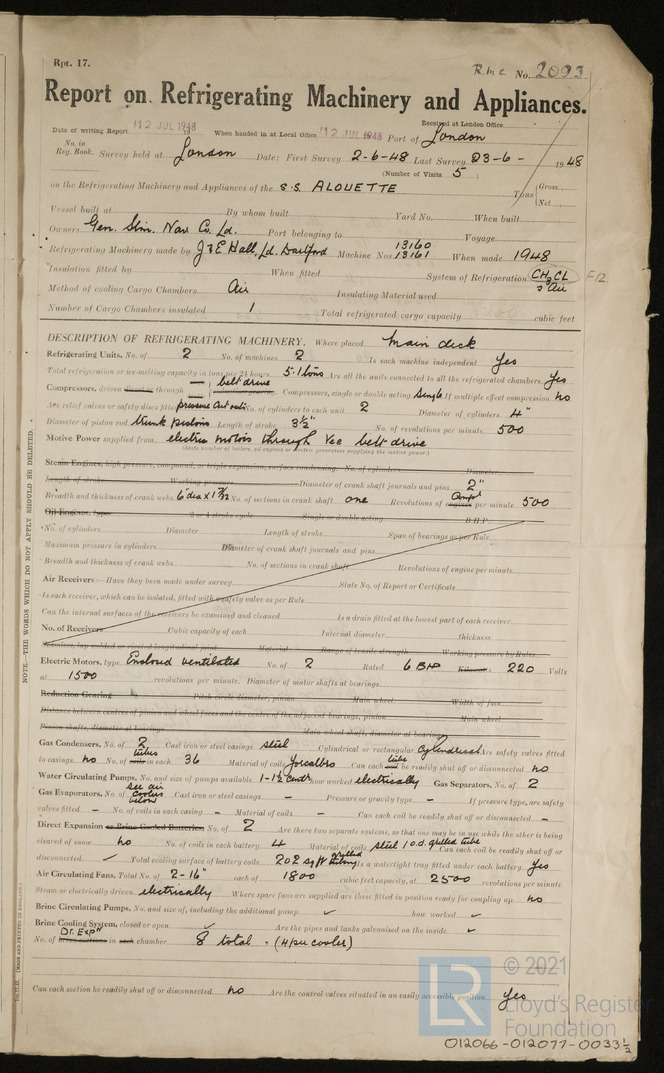 Rpt. 17.
R.M.C. No. 2093
Report on Refrigerating Machinery and Appliances.
Received at London Office
Date of writing Report 12 JUL 1948 When handed in at Local Office 12 JUL 1948 Port of London
No. in Reg. Book. Survey held at London Date: First Survey 2-6-48 Last Survey 23-6- 1948
(Number of Visits 5 )
on the Refrigerating Machinery and Appliances of the S.S. ALOUETTE Tons Gross Net
Vessel built at By whom built Yard No. When built
Owners Gen. Stm. Nav. Co. Ld. Port belonging to Voyage
Refrigerating Machinery made by J & E Hall, Ld. Dartford Machine Nos. 13160 13161 When made 1948
Insulation fitted by When fitted System of Refrigeration CH3CL & Air F12
Method of cooling Cargo Chambers Air Insulating Material used
Number of Cargo Chambers insulated 1 Total refrigerated cargo capacity cubic feet
DESCRIPTION OF REFRIGERATING MACHINERY. Where placed Main deck
Refrigerating Units, No. of 2 No. of machines 2 Is each machine independent Yes
Total refrigeration or ice-melting capacity in tons per 24 hours 5.1 tons Are all the units connected to all the refrigerated chambers Yes
Compressors, driven through belt drive Compressors, single or double acting Single If multiple effect compression no
Are relief valves or safety discs fitted pressure cut outs No. of cylinders to each unit 2 Diameter of cylinders 4"
Diameter of piston rod trunk pistons Length of stroke 3½" No. of revolutions per minute 500
Motive Power supplied from electric motors through Vee belt drive
(State number of boilers, oil engines or electric generators supplying the motive power.)
Steam Engines, high pressure, compound, or triple expansion, surface condensing. No. of cylinders Diameter
Length of stroke Working pressure Diameter of crank shaft journals and pins 2"
Breadth and thickness of crank webs 6 dia x 1 7/32 No. of sections in crank shaft one Revolutions of engines Compr per minute 500
Oil Engines, type 2 or 4 stroke cycle Single or double acting B.H.P.
No. of cylinders Diameter Length of stroke Span of bearings as per Rule
Maximum pressure in cylinders Diameter of crank shaft journals and pins
Breadth and thickness of crank webs No. of sections in crank shaft Revolutions of engine per minute
Air Receivers:—Have they been made under survey State No. of Report or Certificate
Is each receiver, which can be isolated, fitted with a safety valve as per Rule
Can the internal surfaces of the receivers be examined and cleaned Is a drain fitted at the lowest part of each receiver
No. of Receivers Cubic capacity of each Internal diameter thickness
Seamless, lap welded or riveted longitudinal joint Material Range of tensile strength Working pressure by Rules
Electric Motors, type Enclosed ventilated No. of 2 Rated 6 BHP Kilowatts 220 Volts
at 1500 revolutions per minute. Diameter of motor shafts at bearings
Reduction Gearing Pitch circle diameter, pinion Main wheel Width of face
Distance between centres of pinion and wheel faces and the centre of the adjacent bearings, pinion Main wheel
Pinion shafts, diameter at bearings Main wheel shaft, diameter at bearings
Gas Condensers, No. of 2 Cast iron or steel casings steel Cylindrical or rectangular Cylindrical Are safety valves fitted
to casings no No. of coils tubes in each 36 Material of coils Yorcalbro Can each coil tube be readily shut off or disconnected no
Water Circulating Pumps, No. and size of pumps available 1-1½ centr how worked electrically Gas Separators, No. of 2
Gas Evaporators, No. of see air coolers below Cast iron or steel casings – Pressure or gravity type – If pressure type, are safety
valves fitted – No. of coils in each casing – Material of coils – Can each coil be readily shut off or disconnected –
Direct Expansion or Brine Cooled Batteries No. of 2 Are there two separate systems, so that one may be in use while the other is being
cleared of snow no No. of coils in each battery 4 Material of coils steel 1 o.d. grilled tube Can each coil be readily shut off or
disconnected ✓ Total cooling surface of battery coils 202 sq ft grilled tubing Is a watertight tray fitted under each battery Yes
Air Circulating Fans, Total No. of 2-16" each of 1800 cubic feet capacity, at 2500 revolutions per minute
Steam or electrically driven electrically Where spare fans are supplied are these fitted in position ready for coupling up no
Brine Circulating Pumps, No. and size of, including the additional pump ✓ how worked ✓
Brine Cooling System, closed or open ✓ Are the pipes and tanks galvanised on the inside ✓
No. of brine sections Dr. Expn in each chamber 8 total. (4 per cooler)
Can each section be readily shut off or disconnected no Are the control valves situated in an easily accessible position Yes
NOTE—THE WORDS WHICH DO NOT APPLY SHOULD BE DELETED.
(MADE AND PRINTED IN ENGLAND.)
© 2021
LR
Lloyd's Register
Foundation
012066-012077-0033½